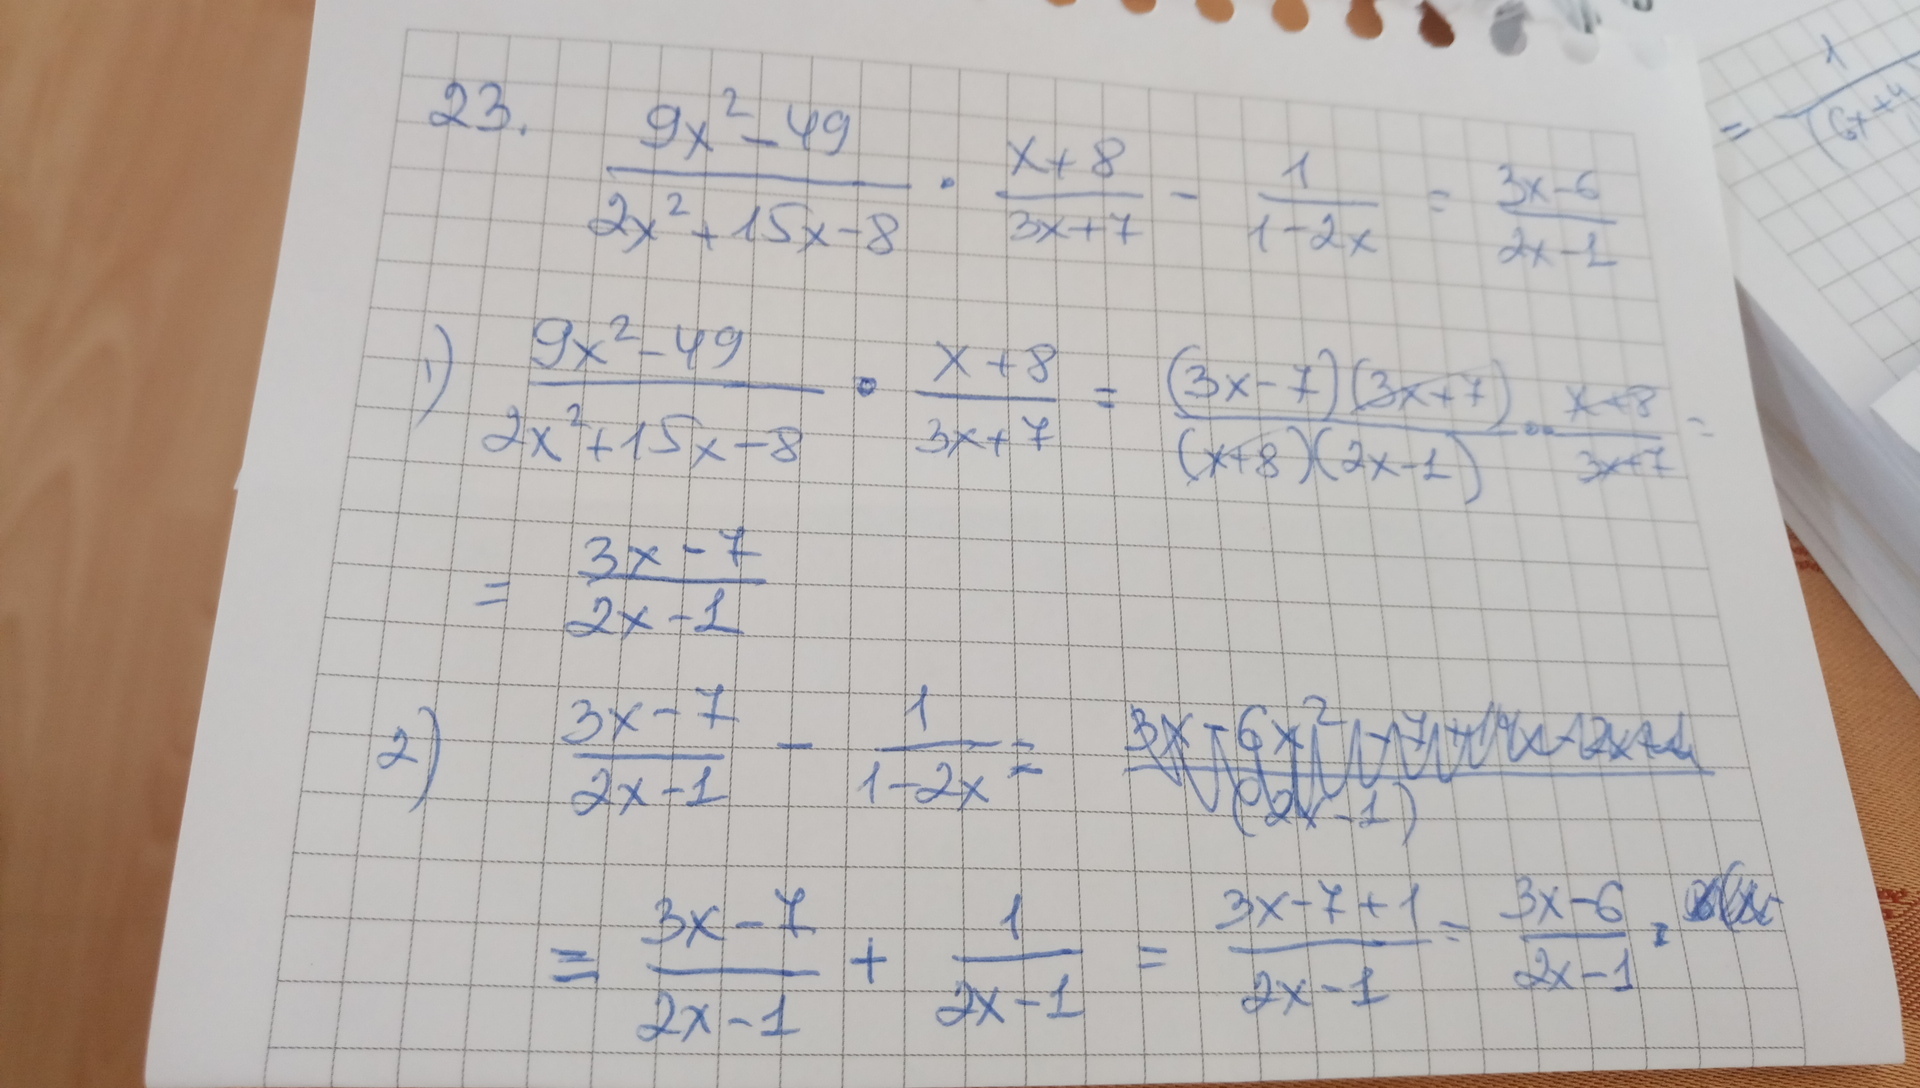 23. (9x² - 49)/(2x² + 15x - 8) · (x + 8)/(3x + 7) - 1/(1 - 2x) = (3x - 6)/(2x - 1)
1) (9x² - 49)/(2x² + 15x - 8) · (x + 8)/(3x + 7) = ((3x - 7)(3x + 7))/((x + 8)(2x - 1)) · (x + 8)/(3x + 7) =
= (3x - 7)/(2x - 1)
2) (3x - 7)/(2x - 1) - 1/(1 - 2x) =
= (3x - 7)/(2x - 1) + 1/(2x - 1) = (3x - 7 + 1)/(2x - 1) = (3x - 6)/(2x - 1).
= 1/(6x + 4